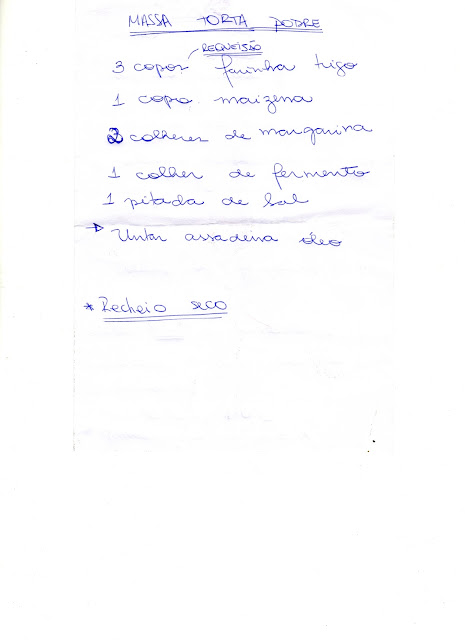 MASSA TORTA PODRE
REQUEIJÃO
3 copos farinha trigo
1 copo maizena
2 colheres de margarina
1 colher de fermento
1 pitada de sal
→ Untar assadeira óleo
* Recheio seco